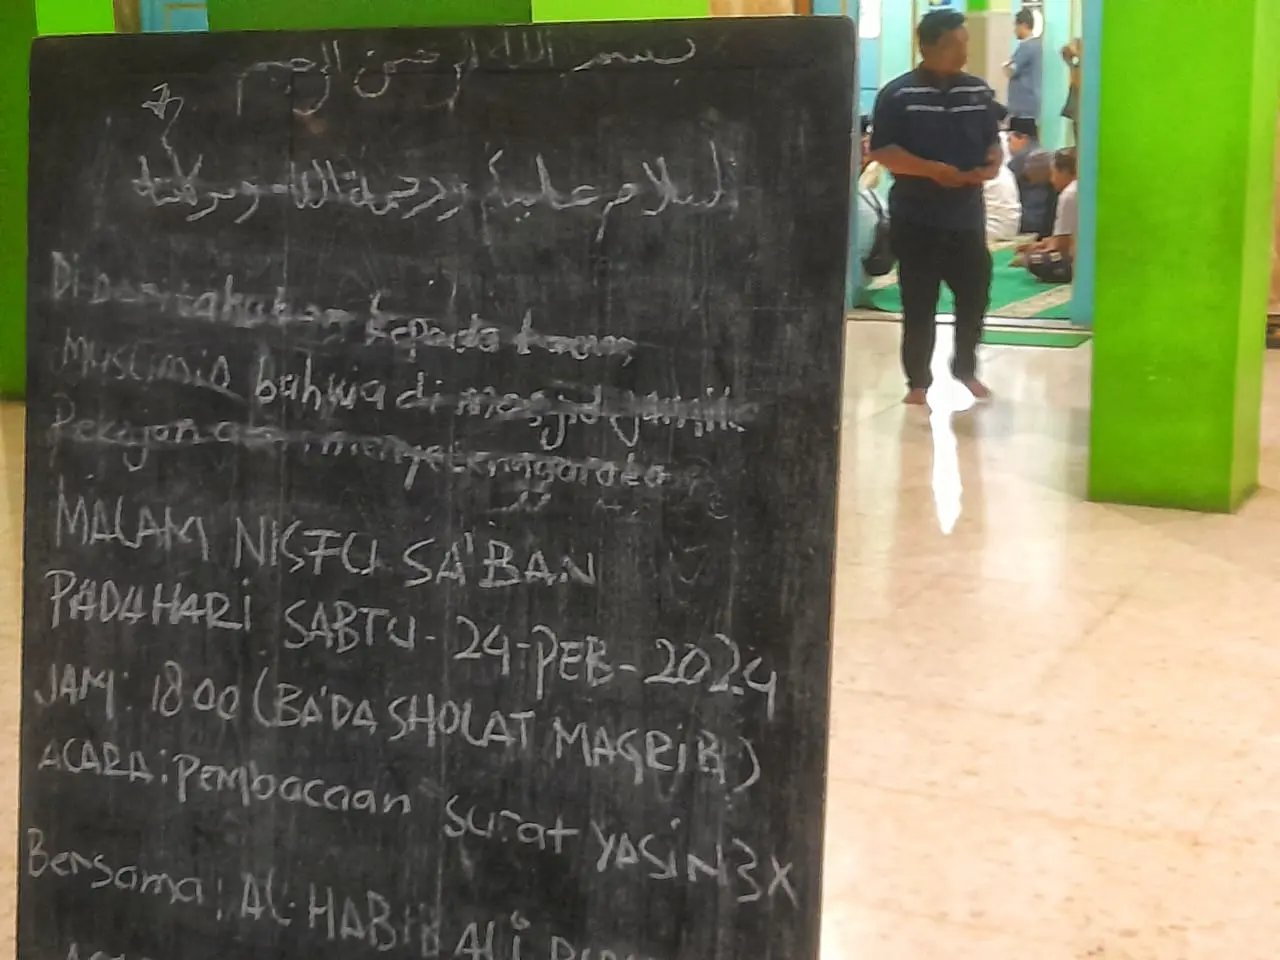 بسم الله الرحمن الرحيم
السلام عليكم ورحمة الله وبركاته
Di beritahukan kepada kaum
Muslimin bahwa di masjid jamik
Pekojan akan menyelenggaraka
MALAM NISFU SA'BAN
PADA HARi SABTU - 24 - PEB - 2024
JAM: 18 00 (BA'DA SHOLAT MAGRiB)
ACARA: PEMbacaan surat YASiN 3X
Bersama: AL-HABIB ALi